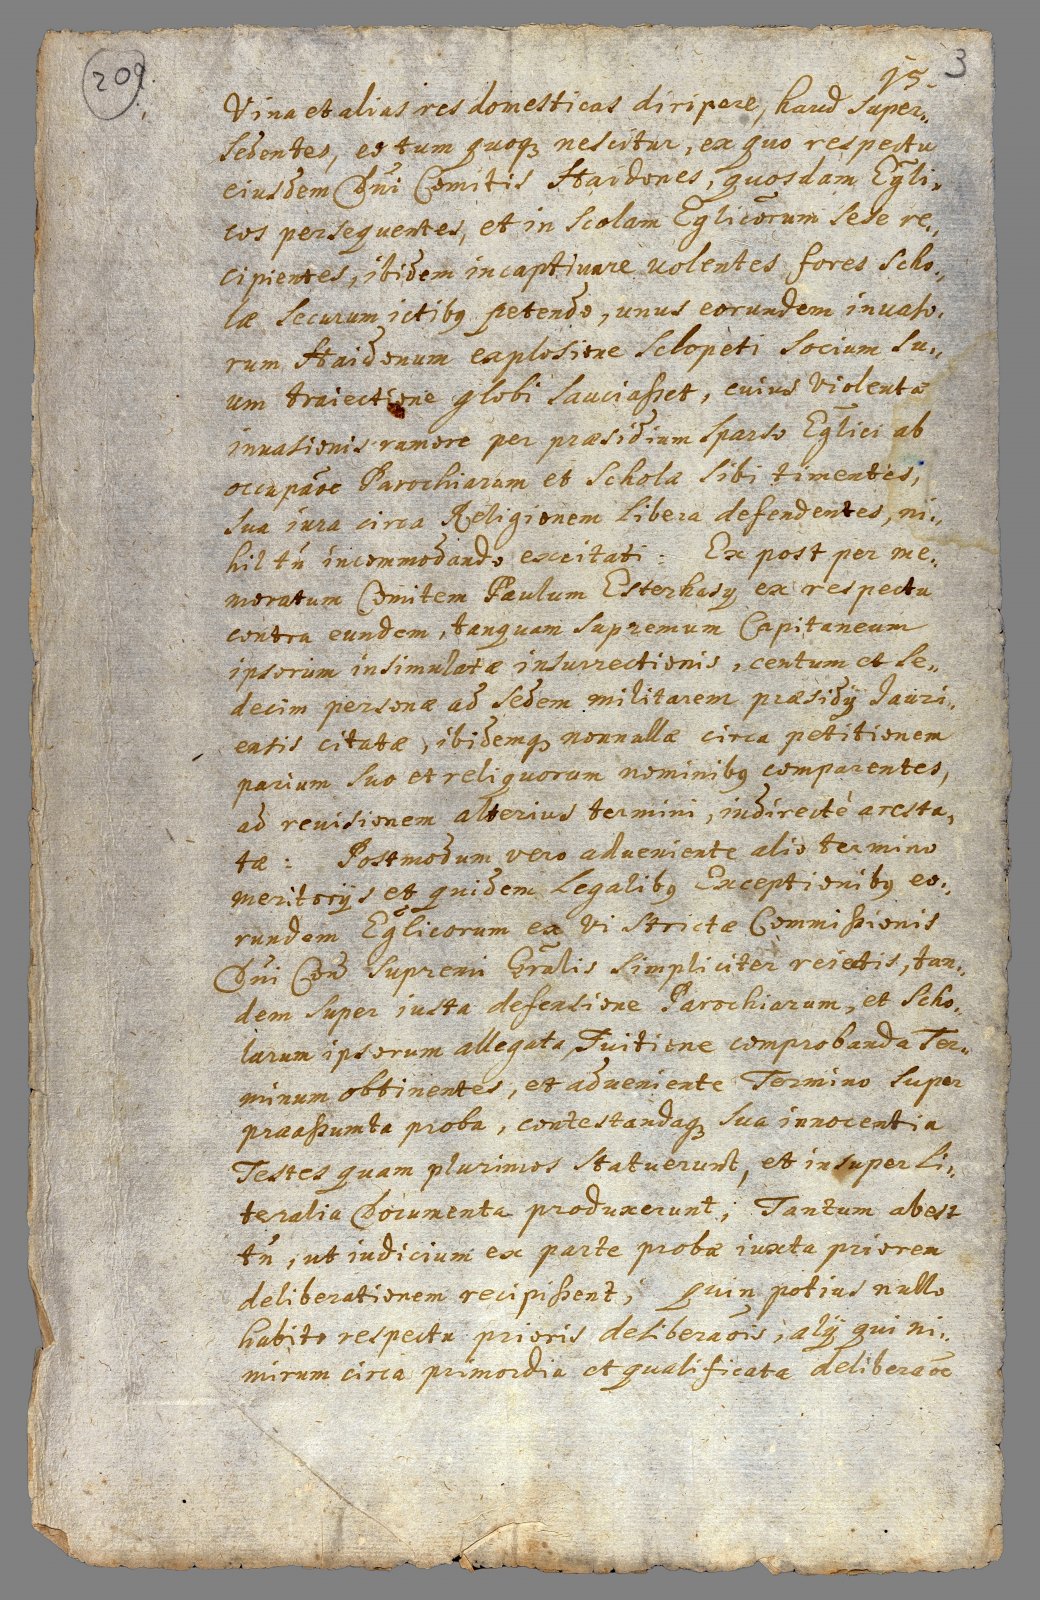 209.
15.
3
Vina et alias res domesticas diripere, haud super„
sedentes, eo tum quoq nescitur, ex quo respectu
eiusdem Dni Comitis Haidones, quosdam Egli„
cos persequentes, et in scolam Eglicorum sese re„
cipientes, ibidem incaptiuare uolentes fores scho„
læ securum ictibq petendo, unus eorundem inuaso„
rum Haidonum explosione sclopeti socium su„
um traiectione globi sauciasset, cuius violentæ
inuasionis rumore per præsidium sparso Eglici ab
occupaoe Parochiarum et Scholæ sibi timentes,
sua iura circa Religionem libera defendentes, ni„
hil tn incommodando excitati: Ex post per me„
moratum Comitem Paulum Esterhasy ex respectu
contra eundem, tanquam supremum Capitaneum
ipsorum insimulatæ insurrectionis, centum et se„
decim personæ ad sedem militarem præsidÿ Jauri„
ensis citatæ, ibidemq nonnullæ circa petitionem
parium suo et reliquorum nominibq comparentes,
ad reuisionem alterius termini, indirecté aresta„
tæ: Postmodum vero adueniente alio termino
meritorÿs et quidem legalibq Exceptionibq eo„
rundem Eglicorum ex vi strictæ Commissionis
Dni Cond supremi Gralis simpliciter reiectis, tan„
dem super iusta defensione Parochiarum, et Scho„
larum ipsorum allegata Fuitione comprobanda Ter„
minum obtinentes, et adueniente Termino super
praassumta proba, contestandaq sua innocentia
Testes quam plurimos statuerunt, et insuper Li„
teralia Documenta produxerunt; Tantum abest
tn, ut iudicium ex parte probæ iuxta priorem
deliberationem recipissent; quin potius nullo
habito respectu prioris deliberaois, alÿ qui ni„
mirum circa primordia et qualificata deliberaoe